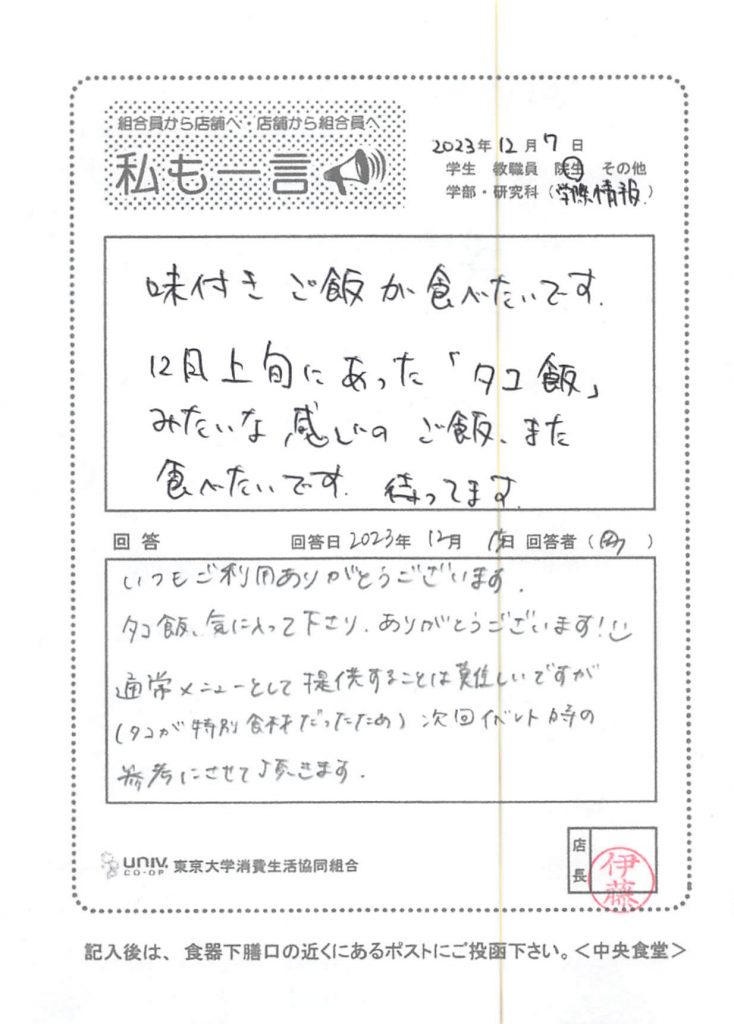 組合員から店舗へ・店舗から組合員へ
私も一言
2023年12月7日
学生 教職員 院生 その他
学部・研究科（学際情報）
味付きご飯が食べたいです。
12月上旬にあった「タコ飯」
みたいな感じのご飯、また
食べたいです。待ってます。
回答 回答日 2023年 12月 日 回答者（ ）
いつもご利用ありがとうございます。
タコ飯、気に入って下さり、ありがとうございます!
通常メニューとして提供することは難しいですが
(タコが特別食材だったため) 次回イベント時の
参考にさせて頂きます。
店長
伊藤
univ. CO-OP 東京大学消費生活協同組合
記入後は、食器下膳口の近くにあるポストにご投函下さい。＜中央食堂＞